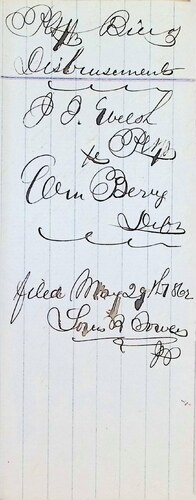 Plff Bill of
Disbursements
P. J. Welsh
Plff
x
Wm Berry
Deft
filed May 29th 1862
Louis R Bowen
JP